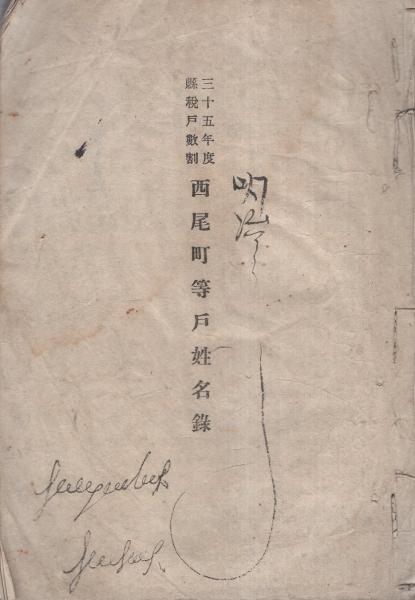 明治
三十五年度
縣稅戶數割
西尾町等戶姓名錄